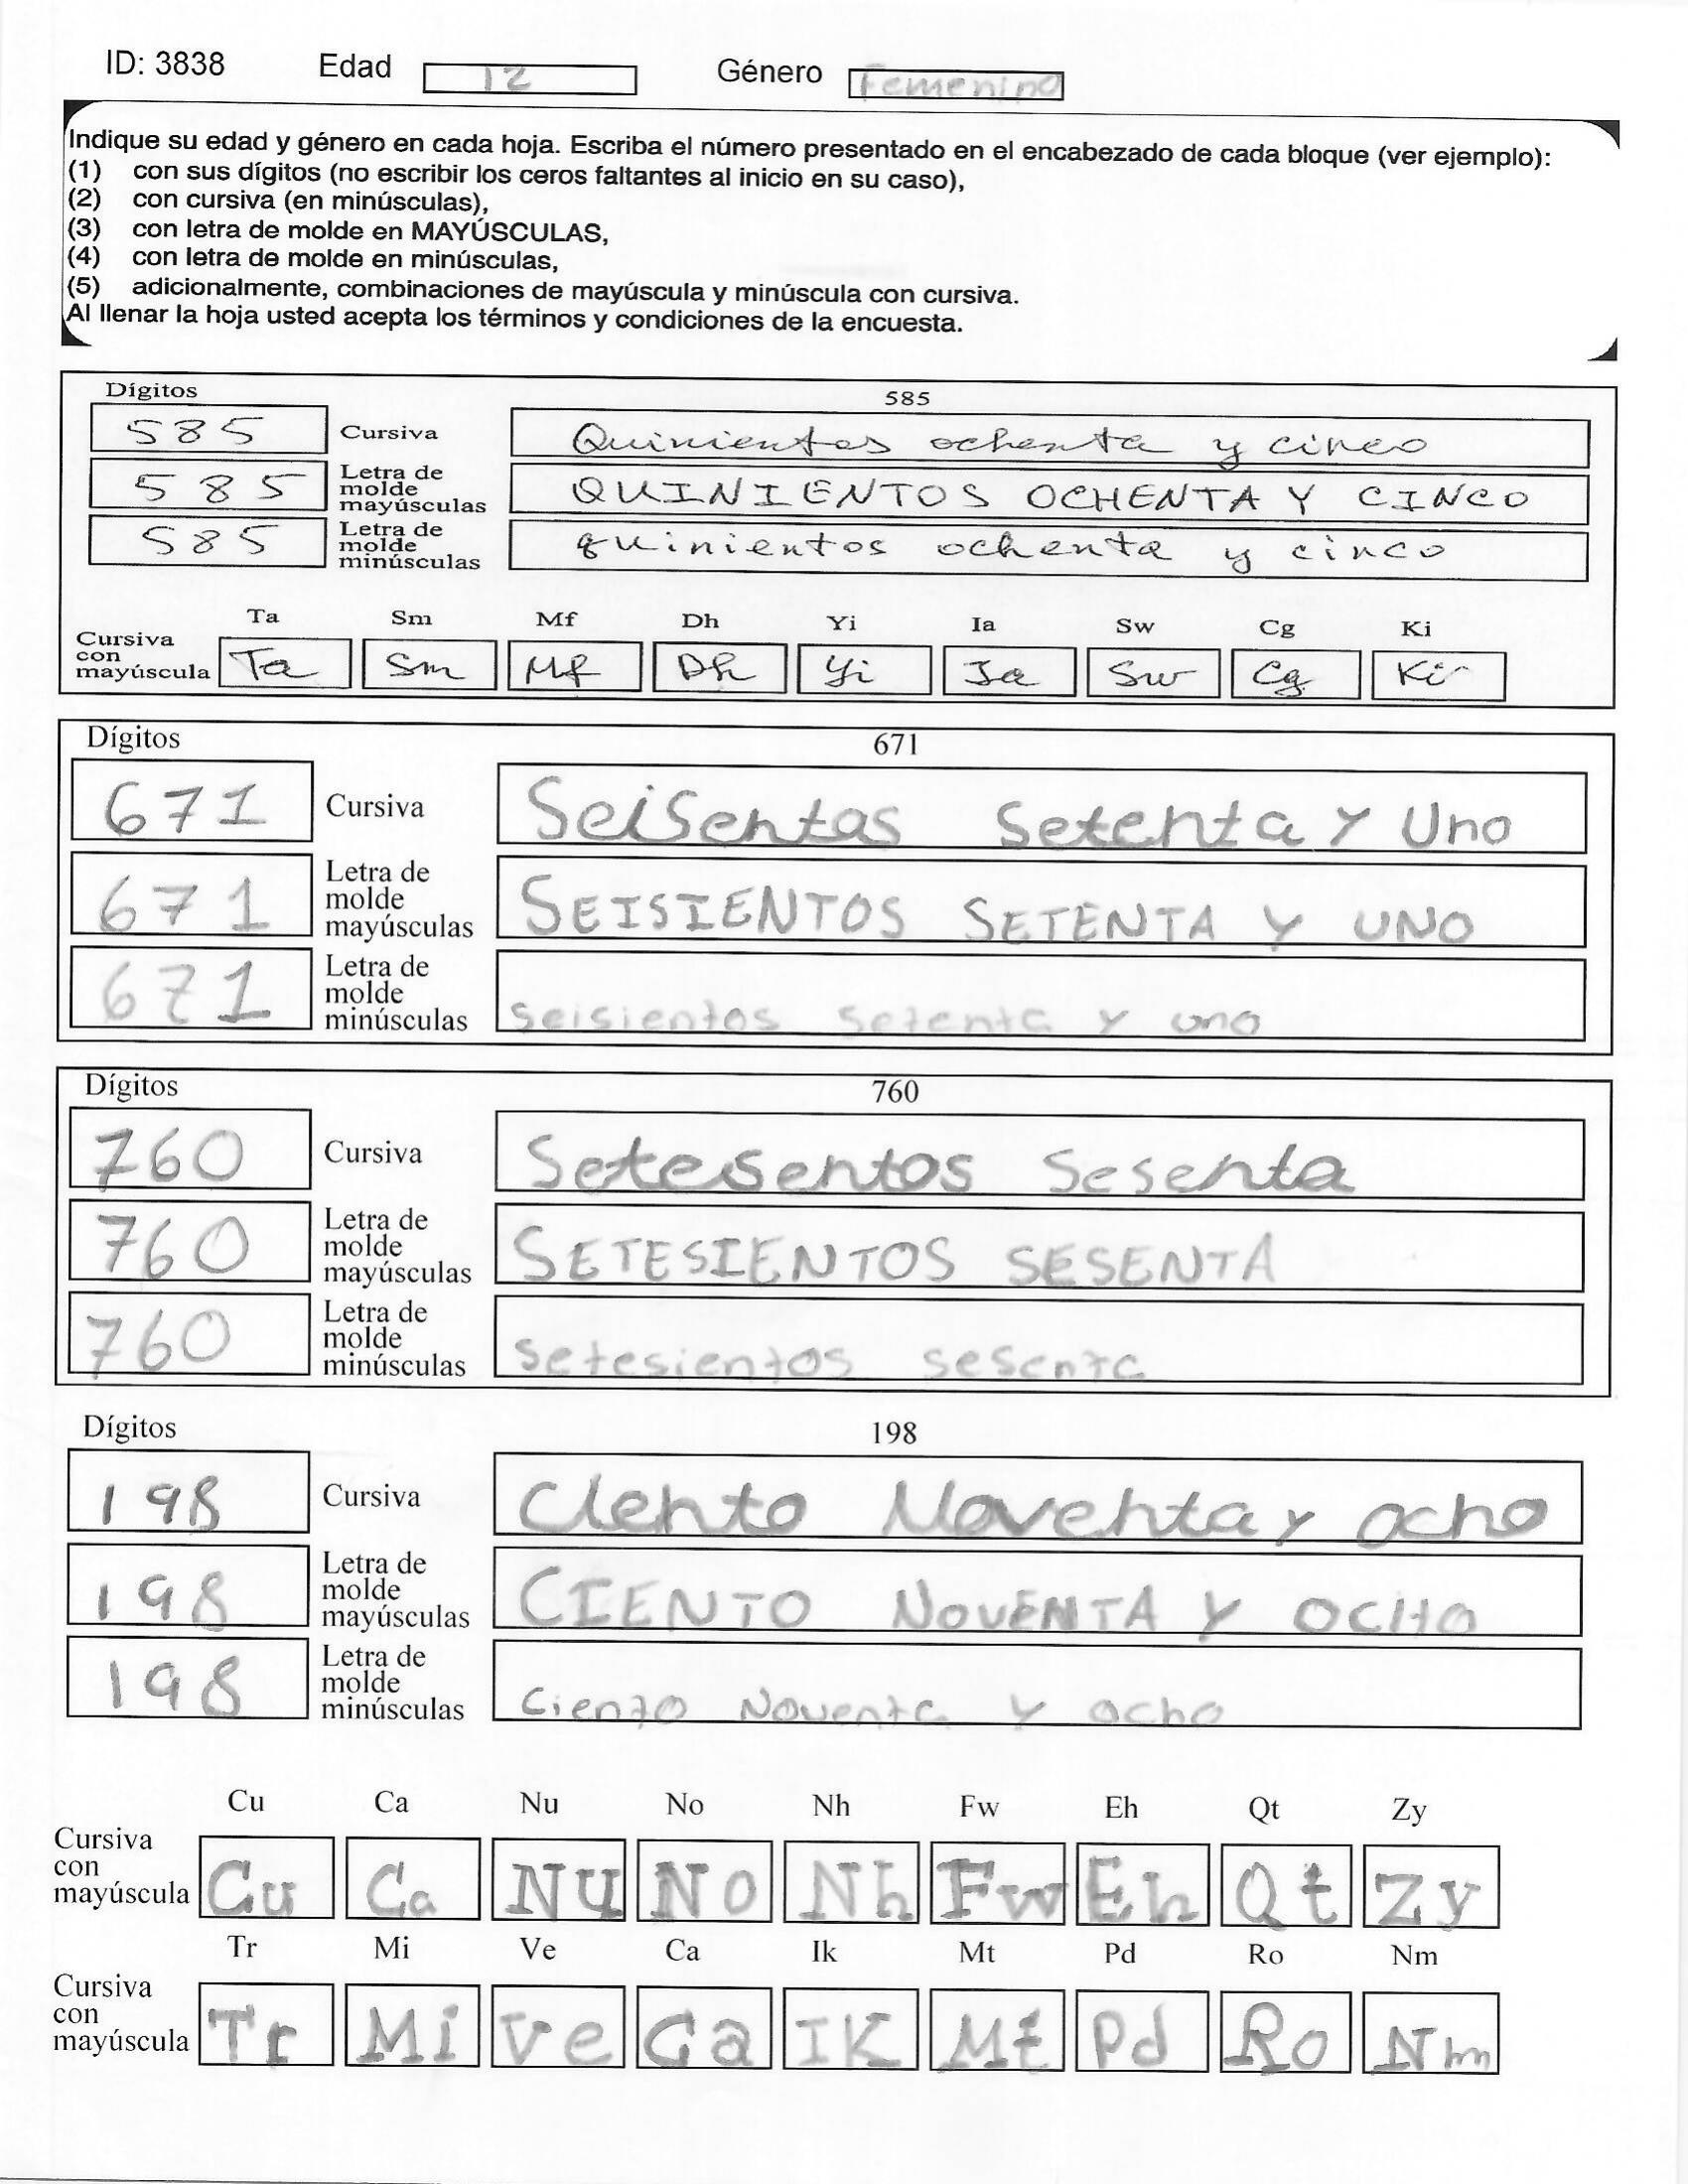 ID: 3838 Edad 12 Género Femenino
Indique su edad y género en cada hoja. Escriba el número presentado en el encabezado de cada bloque (ver ejemplo):
(1) con sus dígitos (no escribir los ceros faltantes al inicio en su caso),
(2) con cursiva (en minúsculas),
(3) con letra de molde en MAYÚSCULAS,
(4) con letra de molde en minúsculas,
(5) adicionalmente, combinaciones de mayúscula y minúscula con cursiva.
Al llenar la hoja usted acepta los términos y condiciones de la encuesta.
Dígitos 585
585 Cursiva Quinientos ochenta y cinco
585 Letra de molde mayúsculas QUINIENTOS OCHENTA Y CINCO
585 Letra de molde minúsculas quinientos ochenta y cinco
Ta Sm Mf Dh Yi Ia Sw Cg Ki
Cursiva con mayúscula Ta Sm Mf Dh Yi Ia Sw Cg Ki
Dígitos 671
671 Cursiva SeiSentas Setenta y Uno
671 Letra de molde mayúsculas SEISIENTOS SETENTA Y UNO
671 Letra de molde minúsculas seisientos setenta y uno
Dígitos 760
760 Cursiva Setesentos Sesenta
760 Letra de molde mayúsculas SETESIENTOS SESENTA
760 Letra de molde minúsculas setesientos sesenta
Dígitos 198
198 Cursiva CIento Noventa y ocho
198 Letra de molde mayúsculas CIENTO NOVENTA Y OCHO
198 Letra de molde minúsculas Ciento Noventa y ocho
Cu Ca Nu No Nh Fw Eh Qt Zy
Cursiva con mayúscula Cu Ca Nu No Nh Fw Eh Qt Zy
Tr Mi Ve Ca Ik Mt Pd Ro Nm
Cursiva con mayúscula Tr Mi Ve Ca IK Mt Pd Ro Nm